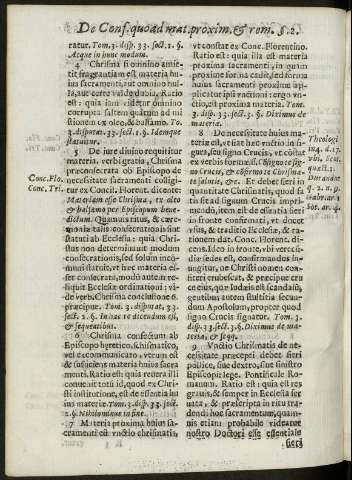 De Conf. quoad mat. proxim. & rem. §. 2.
ratur. Tom. 3. disp. 33. sect. 1. §.
Atque in hunc modum.
4 Chrisma si omnino amit-
tit fragrantiam est materia hu-
ius sacramenti, aut omnino nul-
la, aut certe valde dubia, Ratio
est: quia iam videtur omnino
corrupta saltem quoad
mistionem ex oleo, & balsamo. To.
3. disputat. 33. sect. 1. §. Idemque
statuitur.
5 De iure divino requiritur
materia, verbi gratia, Chrisma
præconsecrata ob Episcopo de
necessitate sacramenti colligi-
tur ex Concil. Florent. dicente
Materiam esse Chrisma, ex oleo
& balsamo per Episcopum bene-
dictum. Quamvis ritus, & cære-
monia talis consecrationis sint
statuti ab Ecclesia: quia Chri-
stus non determinavit modum
consecrationis, sed solum in com-
muni statuit, vt hæc materia es-
set consecrata, modū autem re-
liquit Ecclesiæ ordinationi: vi-
de verb. Chrisma conclusione 6.
præcipue. Tom. 3. disputat. 33.
sect. 1. §. In hac re dicendum est,
& sequentibus.
6 Chrisma consecratum ab
Episcopo hæretico, schismatico,
vel excommunicato, verum est
& sufficiens materia huius sacra
menti. Ratio est: quia retinet il
li convenit totū id, quod ex Chri-
sti institutione, est de essentia hu
ius materiæ Tom. 3. disp. 33. sect.
1. §. Nihilominus in fine.
7 Materia proxima huius sa-
cramenti est vnctio chrismatis,
Conc. Flo.
Conc. Tri.
vt constat ex Conc. Florentino.
Ratio est: quia illa est materia
proxima sacramenti, in quam
proxime cadit forma, sed forma
huius sacramenti proxime
applicatur ipsi vnctioni: ergo vn-
ctio, est proxima materia. Tom.
3. disp. 33. sect. 3. §. Diximus de
materia.
8 De necessitate huius ma-
teriæ est, vt fiat hæc vnctio in fi-
gura, seu signo Crucis, vt constat
ex verbis formæ, Consigno te signo
Crucis, & confirmo te Chrisma-
te salutis, &c. Et debet fieri in
quantitate Chrismatis, quod fa-
tis sit ad signum Crucis impri-
mendum, item est dicendum fieri
in fronte confirmati, vt docet
vsus, & traditio Ecclesiæ, & ra-
tionem dat. Conc. Florent. di-
cens. Ideo in fronte, vbi verecun-
diæ sedes est, confirmandus in-
ungitur, ne Christi nomen confi-
teri erubescat, & præcipue cru-
cem eius, quæ Iudæis est scandalū,
gentibus autem stultitia secun-
dum Apostolum, propter quod
signo Crucis signatur. Tom. 3.
disp. 33. sect. 3. §. Diximus de ma-
teria, & seqq.
9 Vnctio Chrismatis de ne-
cessitate præcepti debet fieri
pollice, sive dextro, sive sinistro
Episcopi: lege. Pontificale Ro-
manum. Ratio est: quia est res
gravis, & semper in Ecclesia ser
vata, & præscripta in ritu tra-
dendi hoc sacramentum, quam-
vis etiam probabile videatur
nostro Doctori esse essentiale
fieri
Theologi
in 4. d. 17.
vbi, Scot.
quæst. 1.
Durand.
q. 2. n. 9.
Gabr. ar. 1.
Sot. ar. 4.